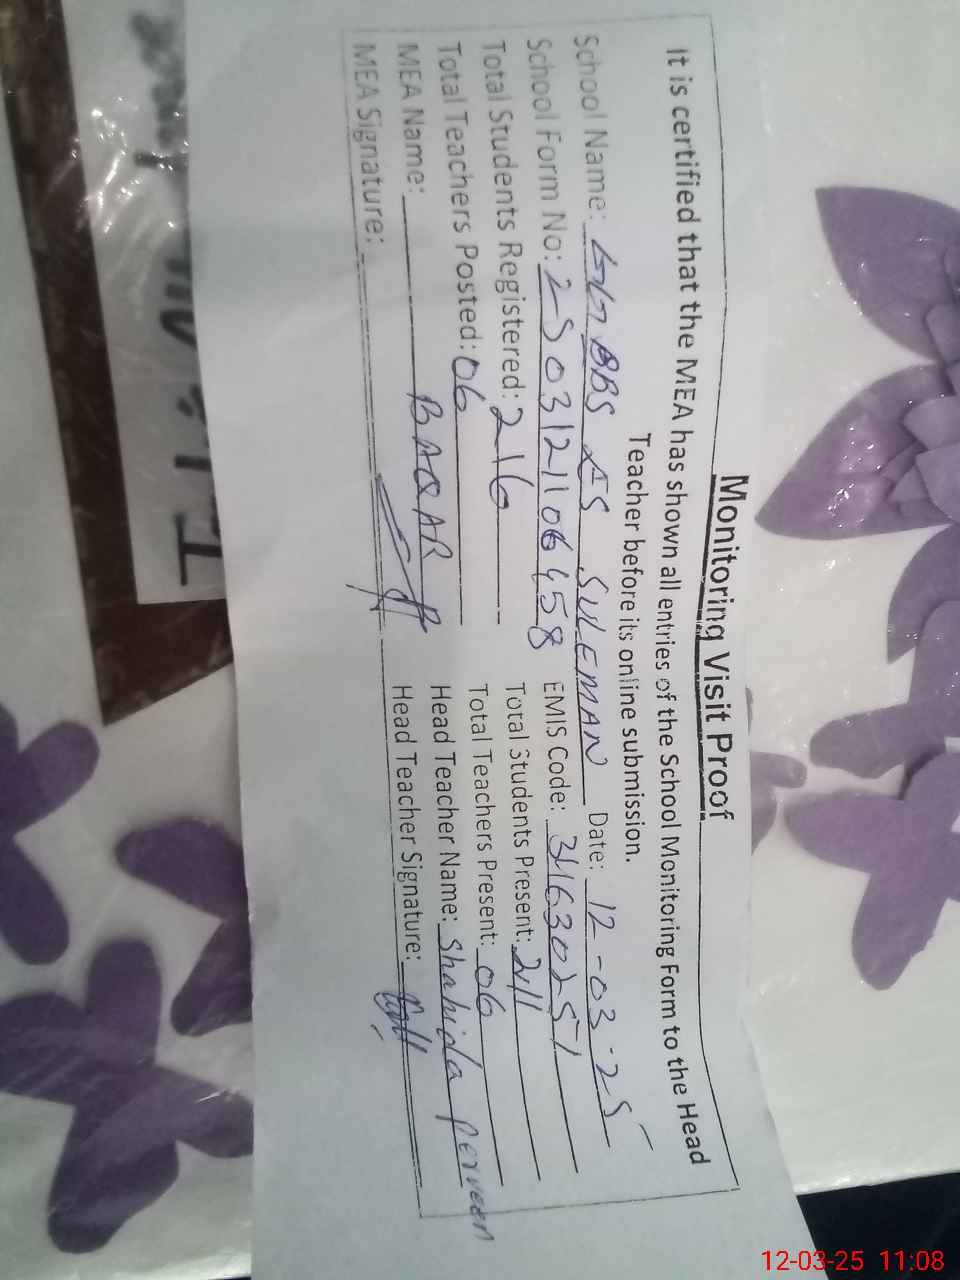 Monitoring Visit Proof
It is certified that the MEA has shown all entries of the School Monitoring Form to the Head
Teacher before its online submission.
School Name: BBS ES SULEMAN Date: 12-03-25
School Form No: 2503121106458 EMIS Code:
Total Students Registered: 216 Total Students Present: 211
Total Teachers Posted: 06 Total Teachers Present: 06
MEA Name: BAQAR Head Teacher Name: Shahida perveen
MEA Signature: Head Teacher Signature:
12-03-25 11:08